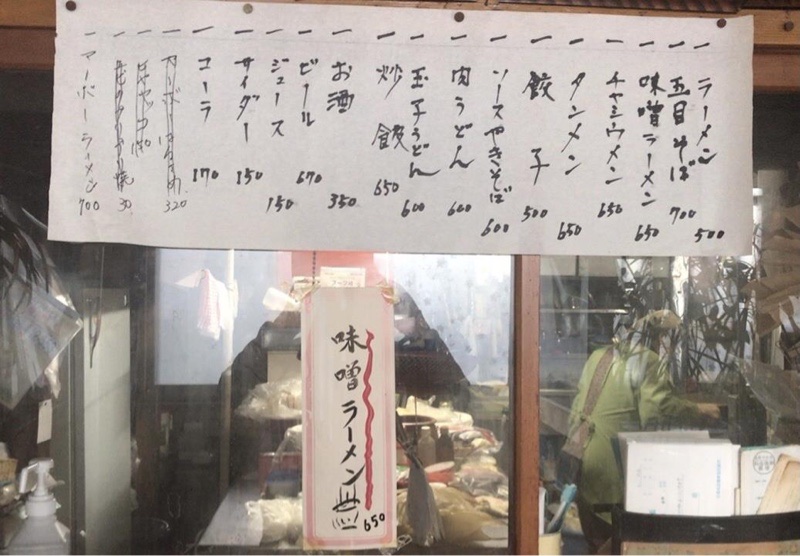 ー ラーメン 500
ー 五目そば 700
ー 味噌ラーメン 650
ー チャーシュウメン 650
ー タンメン 650
ー 餃子 500
ー ソースやきそば 600
ー 肉うどん 600
ー 玉子うどん 600
ー 炒飯 650
ー お酒 350
ー ビール 670
ー ジュース 150
ー サイダー 150
ー コーラ 170
320
30
ー マーボーラーメン 700
味噌ラーメン 650